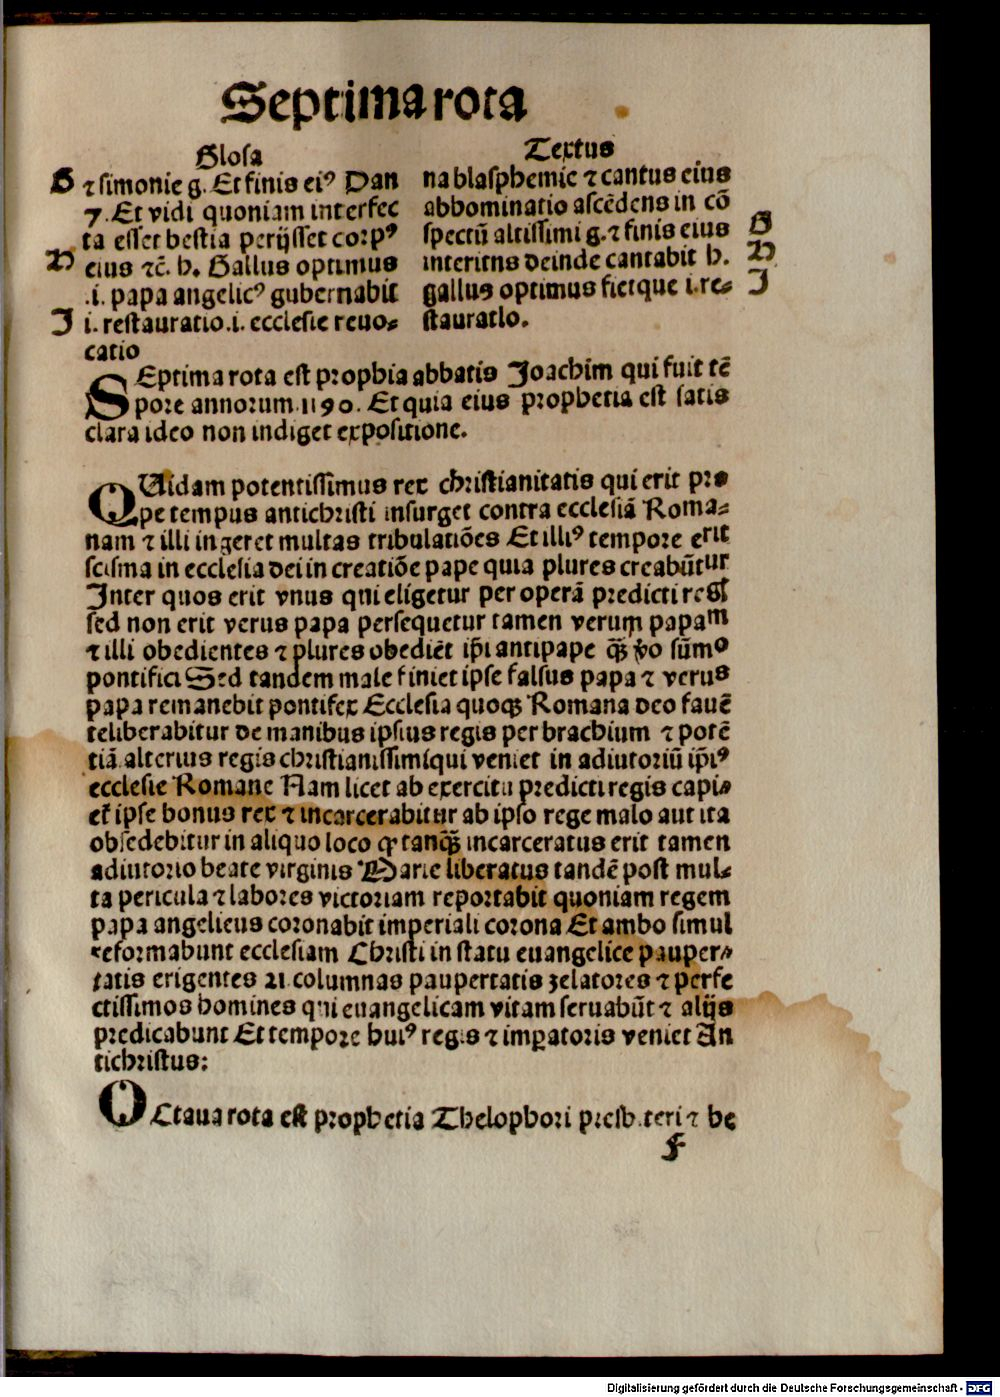 Septima rota
Glosa
G ⁊ simonie g. Et finis eiꝰ Dan
7. Et vidi quoniam interfec
ta esset bestia perijsset corpꝰ
H eius ⁊c̄. h. Gallus optimus
.i. papa angelicꝰ gubernabit
I i. restauratio .i. ecclesie reuo⸗
catio
Textus
na blasphemie ⁊ cantus eius
abbominatio ascēdens in cō
spectū altissimi g. ⁊ finis eius G
interitns deinde cantabit h. H
gallus optimus fietque i. re⸗ I
stauratlo.
SEptima rota est prophia abbatis Joachim qui fuit tē
pore annorum .1190. Et quia eius prophetia est satis
clara ideo non indiget expositione.
QUidam potentissimus rex christianitatis qui erit pro
pe tempus antichristi insurget contra ecclesiā Roma⸗
nam ⁊ illi ingeret multas tribulatiōes Et illiꝰ tempore erit
scisma in ecclesia dei in creatiōe pape quia plures creabūtur
Inter quos erit vnus qni eligetur per operā predicti regꝭ
sed non erit verus papa persequetur tamen verum papam
⁊ illi obedientes ⁊ plures obediēt ip̄i antipape qꝫ̄ v̄o sūmo
pontifici Sed tandem male finiet ipse falsus papa ⁊ verus
papa remanebit pontifex Ecclesia quoqꝫ Romana deo fauē
teliberabitur de manibus ipsius regis per brachium ⁊ potē
tiā alterius regis christianissimiqui veniet in adiutoriū ip̄iꝰ
ecclesie Romane Nam licet ab exercitu predicti regis capi⸗
et̄ ipse bonus rex ⁊ incarcerabitur ab ipso rege malo aut ita
obsedebitur in aliquo loco ꝙ tanqꝫ̄ incarceratus erit tamen
adiutorio beate virginis Marie liberatus tandē post mul⸗
ta pericula ⁊ labores victoriam reportabit quoniam regem
papa angelicus coronabit imperiali corona Et ambo simul
reformabunt ecclesiam Christi in statu euangelice pauper⸗
tatis erigentes 21 columnas paupertatis zelatores ⁊ perfe
ctissimos homines qui euangelicam vitam seruabūt ⁊ alijs
predicabunt Et tempore huiꝰ regis ⁊ imꝑatoris veniet An
tichristus:
OCtaua rota est prophetia Thelophori presbiteri ⁊ he
f
Digitalisierung gefördert durch die Deutsche Forschungsgemeinschaft - DFG